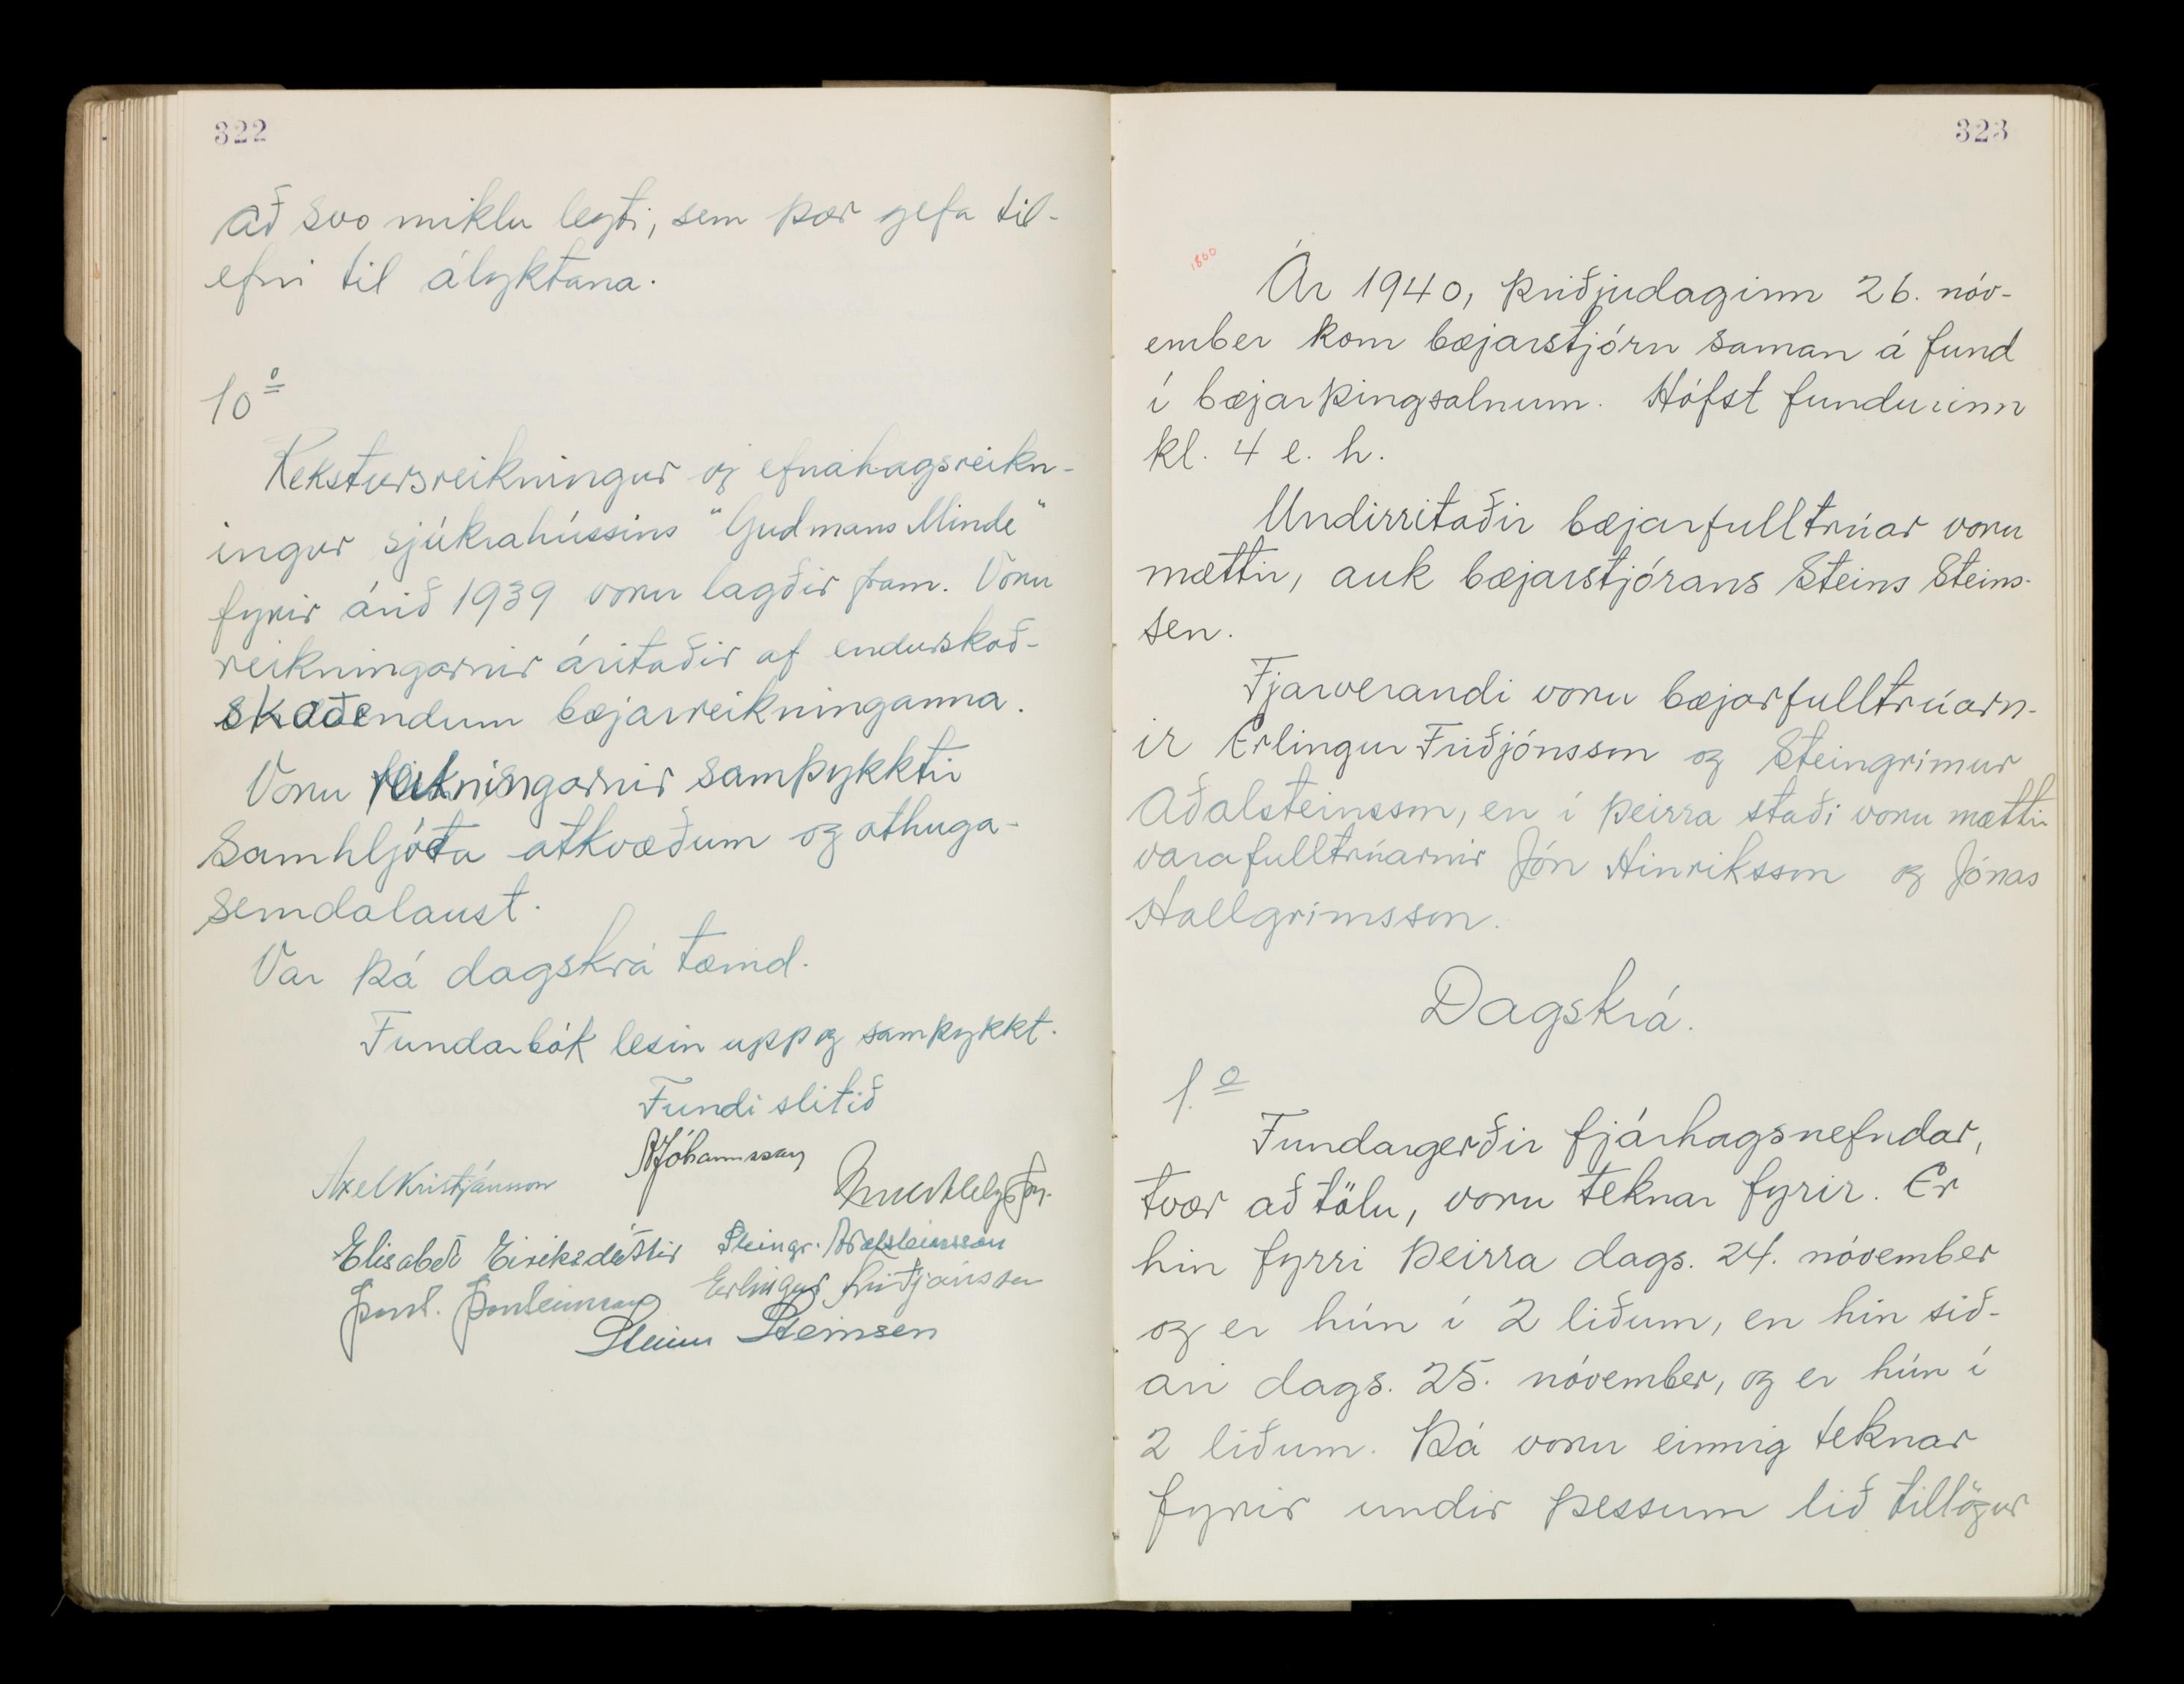 322
að svo miklu leyti, sem þær gefa til-
efni til ályktana.
10º
Rekstursreikningur og efnahagsreikn-
ingur sjúkrahússins "Gudmans Minde"
fyrir árið 1939 voru lagðir fram. Voru
reikningarnir áritaðir af endurskoð-
skoðendum bæjarreikninganna.
Voru reikningarnir samþykktir
samhljóða atkvæðum og athuga-
semdalaust.
Var þá dagskrá tæmd.
Fundarbók lesin upp og samþykkt.
Fundi slitið
Jóhannsson
Axel Kristjánsson
Elísabet Eiríksdóttir Steingr. Aðalsteinsson
Þorst. Þorsteinsson Erlingur Friðjónsson
Steinn Steinsen
323
1860
Ár 1940, þriðjudaginn 26. nóv-
ember kom bæjarstjórn saman á fund
í bæjarþingsalnum. Hófst fundurinn
kl. 4 e. h.
Undirritaðir bæjarfulltrúar voru
mættir, auk bæjarstjórans Steins Steins-
sen.
Fjarverandi voru bæjarfulltrúarn-
ir Erlingur Friðjónsson og Steingrímur
Aðalsteinsson, en í þeirra staði voru mættir
varafulltrúarnir Jón Hinriksson og Jónas
Hallgrímsson.
Dagskrá.
1.º
Fundargerðir fjárhagsnefndar,
tvær að tölu, voru teknar fyrir. Er
hin fyrri þeirra dags. 24. nóvember
og er hún í 2 liðum, en hin síð-
ari dags. 25. nóvember, og er hún í
2 liðum. Þá voru einnig teknar
fyrir undir þessum lið tillögur